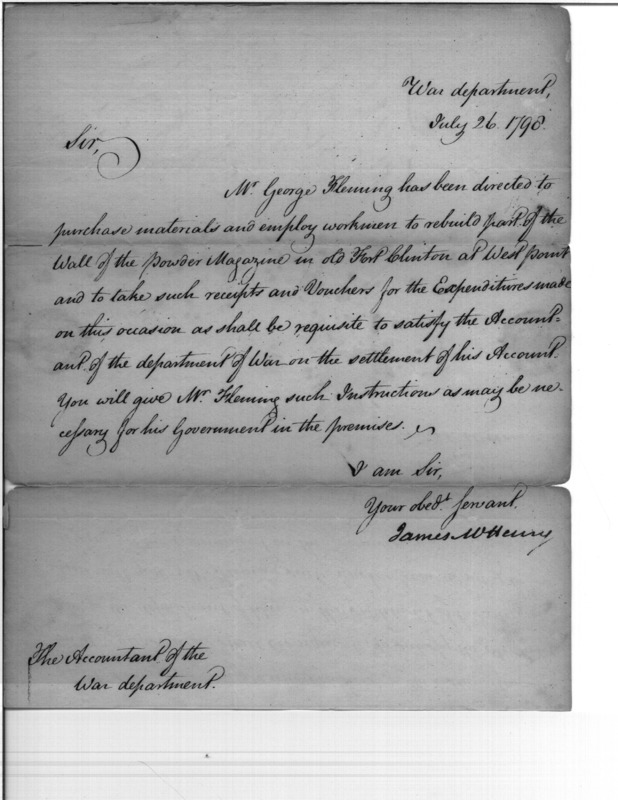 War department,
July 26. 1798.
Sir,
Mr. George Fleming has been directed to
purchase materials and employ workmen to rebuild part of the
Wall of the Powder Magazine in old Fort Clinton at West Point
and to take such receipts and Vouchers for the Expenditures made
on this occasion as shall be requisite to satisfy the Account=
ant of the department of War on the settlement of his Account.
You will give Mr. Fleming such Instructions as may be ne-
cessary for his Government in the premises.
I am Sir,
Your obedt. servant.
James McHenry
The Accountant of the
War department.